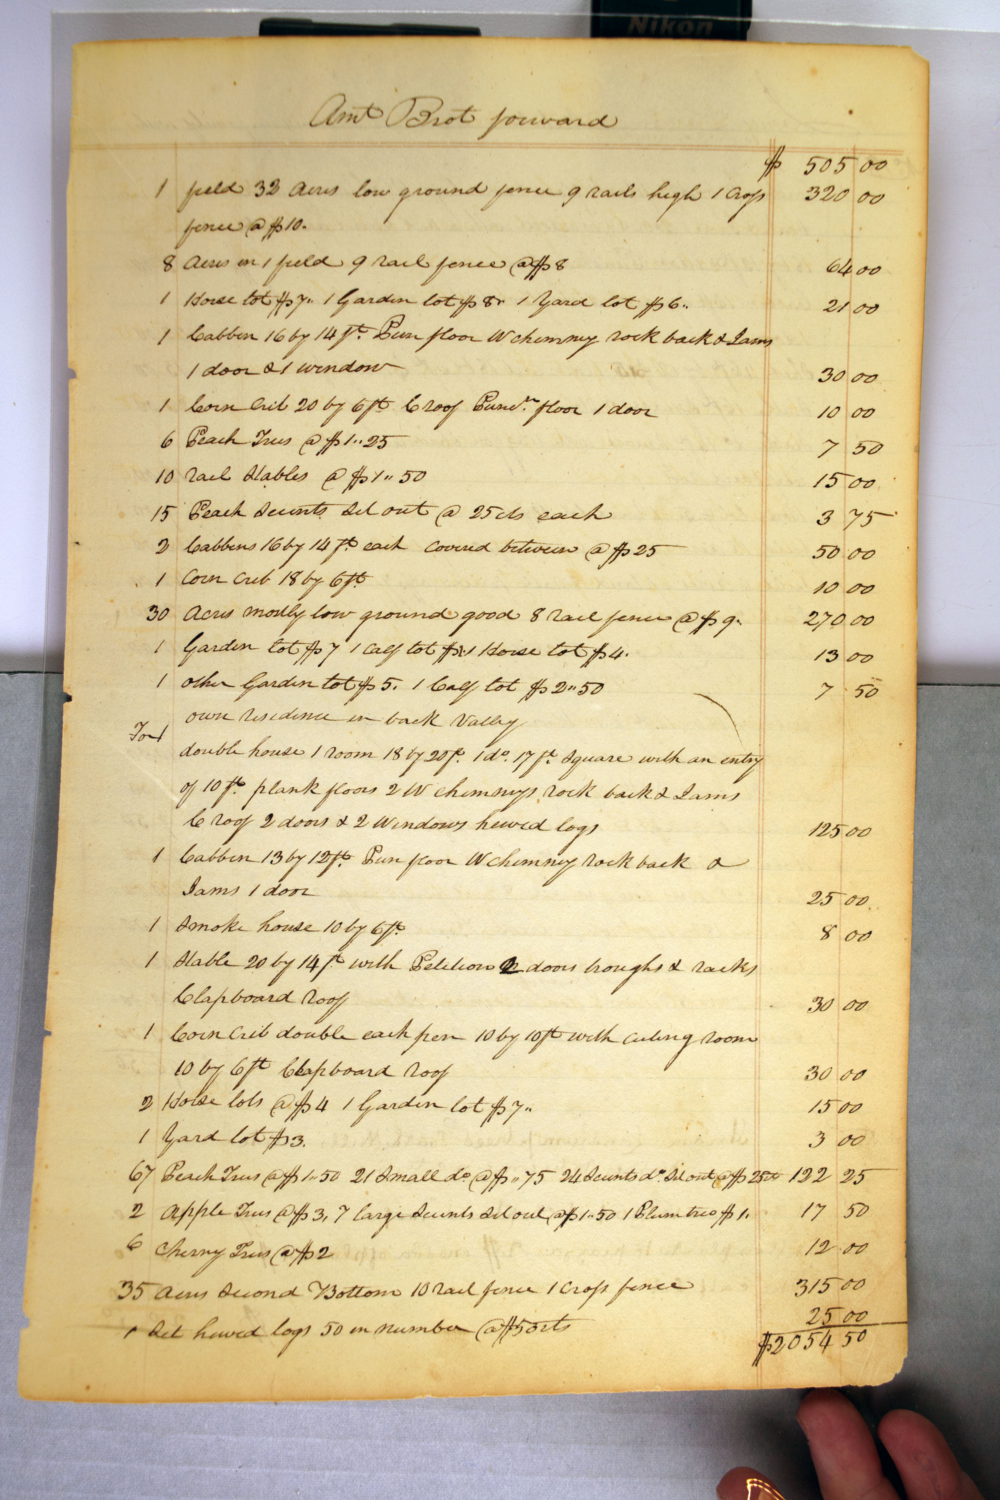 Nikon
Amt Brot forward
$ 505 00
1 field 32 Acres low ground fence 9 rails high 1 Cross 320 00
fence @ $10.
8 Acres in 1 field 9 rail fence @ $8 64 00
1 Horse lot $7.. 1 Garden lot $8 1 Yard lot $6.. 21 00
1 Cabben 16 by 14 ft. Pun floor W chimney rock back & Jams
1 door & 1 window 30 00
1 Corn Crib 20 by 6 ft C roof Punn floor 1 door 10 00
6 Peach Trees @ $1..25 7 50
10 rail Stables @ $1..50 15 00
15 Peach Scunts Set out @ 25 cts each 3 75
2 Cabbens 16 by 14 ft each covered between @ $25 50 00
1 Corn Crib 18 by 6 ft. 10 00
30 Acres mostly low ground good 8 rail fence @ $9.. 270 00
1 Garden lot $7 1 Calf lot 1 Horse lot $4. 13 00
1 other Garden lot $5. 1 Calf lot $2..50 7 50
own residence in back Valley
1 double house 1 room 18 by 20 ft. 1 do. 17 ft. Square with an entry
of 10 ft. plank floors 2 W chimneys rock back & Jams
C roof 2 doors & 2 Windows hewed logs 125 00
1 Cabben 13 by 12 ft. Pun floor W chimney rock back &
Jams 1 door 25 00
1 Smoke house 10 by 6 ft. 8 00
1 Stable 20 by 14 ft with Petition 2 doors troughs & racks
Clapboard roof 30 00
1 Corn Crib double each pen 10 by 10 ft with ceiling room
10 by 6 ft Clapboard roof 30 00
2 Horse lots @ $4 1 Garden lot $7.. 15 00
1 Yard lot $3. 3 00
67 Peach Trees @ $1..50 21 Small do @ $..75 24 Scunts do. Set out @ $25 cts 122 25
2 Apple Trees @ $3, 7 large Scunts Set out @ $1..50 1 Plum tree $1. 17 50
6 Cherry Trees @ $2 12 00
35 Acres Second Bottom 10 rail fence 1 Cross fence 315 00
1 Set hewed logs 50 in number @ $50 cts 25 00
$2054 50